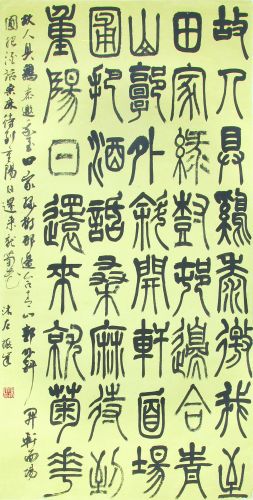 故人具雞黍邀我至
田家綠樹邨邊合青
山郭外斜開軒面場
圃把酒話桑麻待到
重陽日還來就菊花
故人具鷄黍邀我至田家綠樹邨邊合青山郭外斜開軒面場
圃把酒話桑麻待到重陽日還來就菊花